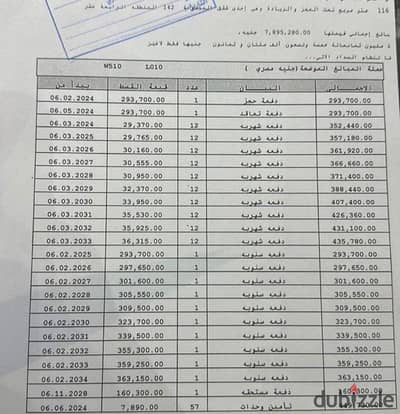 116 متر مربع تحت العجز والزيادة وهى إحدى 142 المنطقة الرابعة عشر
بالغ إجمالى قيمتها 7,895,280.00 جنيه،
مليون ثمانمائة خمسة وتسعون ألف مئتان و ثمانون جنيها فقط لاغير
W510 L010
جملة المبالغ الموضحة (جنيه مصري)
الإجمـــالى البيـــــان عدد قيمة القسط يبدأ من
293,700.00 دفعة حجز 1 293,700.00 06.02.2024
293,700.00 دفعة تعاقد 1 293,700.00 06.05.2024
352,440.00 دفعة شهرية 12 29,370.00 06.03.2024
357,180.00 دفعة شهرية 12 29,765.00 06.03.2025
361,920.00 دفعة شهرية 12 30,160.00 06.03.2026
366,660.00 دفعة شهرية 12 30,555.00 06.03.2027
371,400.00 دفعة شهرية 12 30,950.00 06.03.2028
388,440.00 دفعة شهرية 12 32,370.00 06.03.2029
407,400.00 دفعة شهرية 12 33,950.00 06.03.2030
426,360.00 دفعة شهرية 12 35,530.00 06.03.2031
431,100.00 دفعة شهرية 12 35,925.00 06.03.2032
435,780.00 دفعة شهرية 12 36,315.00 06.03.2033
293,700.00 دفعة سنوية 1 293,700.00 06.02.2025
297,650.00 دفعة سنوية 1 297,650.00 06.02.2026
301,600.00 دفعة سنوية 1 301,600.00 06.02.2027
305,550.00 دفعة سنوية 1 305,550.00 06.02.2028
309,500.00 دفعة سنوية 1 309,500.00 06.02.2029
323,700.00 دفعة سنوية 1 323,700.00 06.02.2030
339,500.00 دفعة سنوية 1 339,500.00 06.02.2031
355,300.00 دفعة سنوية 1 355,300.00 06.02.2032
359,250.00 دفعة سنوية 1 359,250.00 06.02.2033
363,150.00 دفعة سنوية 1 363,150.00 06.02.2034
دفعة مستحقة 1 160,300.00 06.11.2028
تأمين وحدات 57 7,890.00 06.06.2024
dubizzle